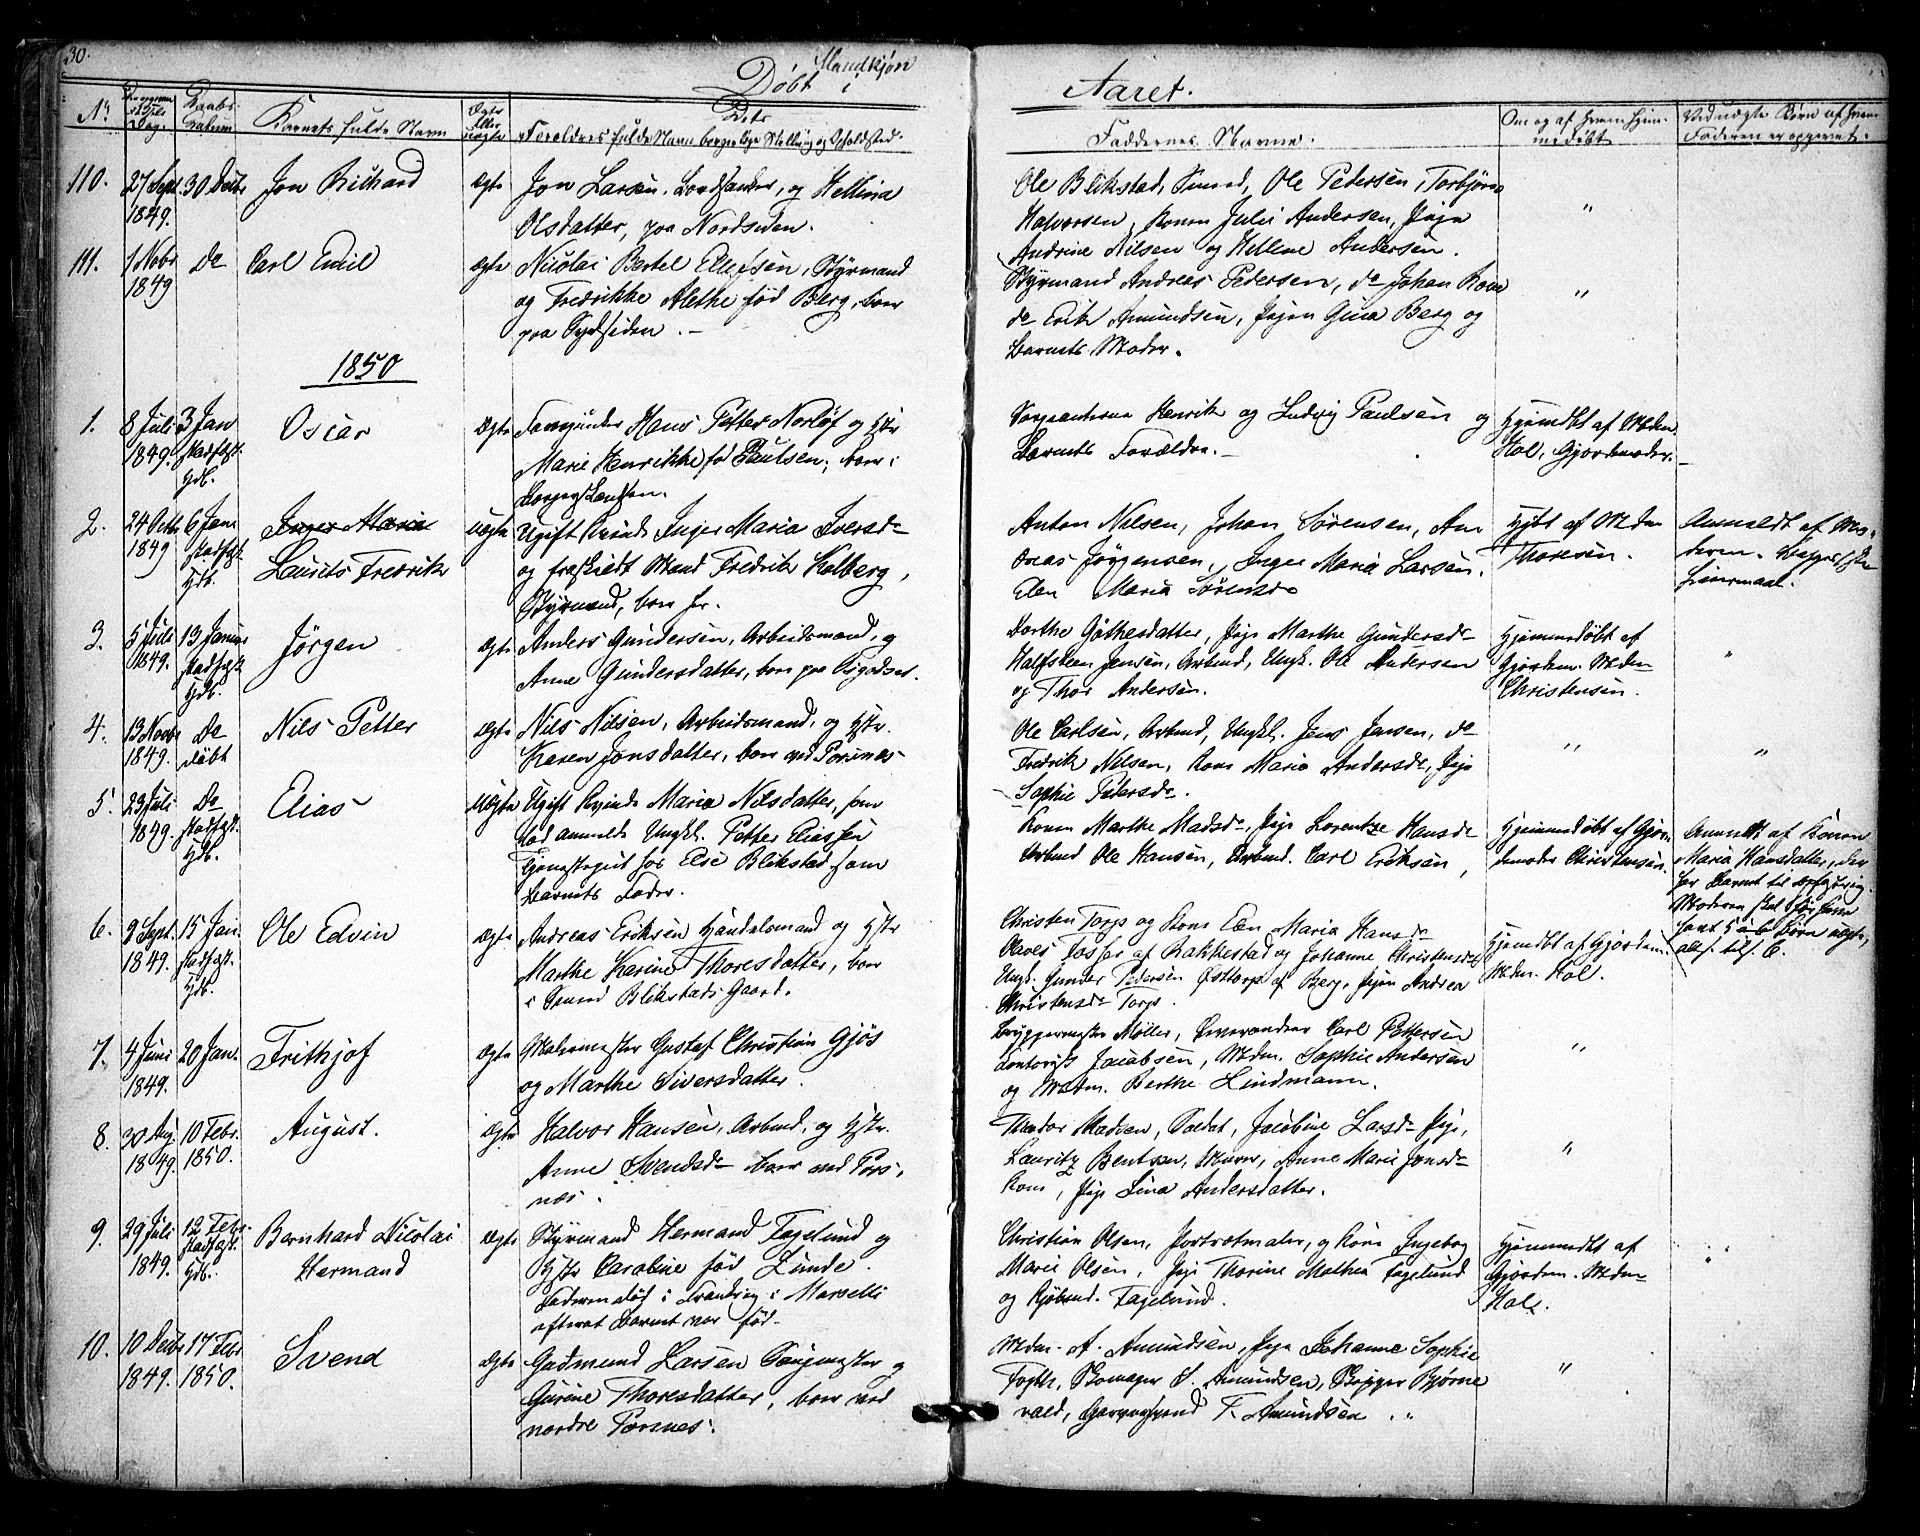 30.
Mandkjøn
Døbt i Aaret.
No
Daabs-
Datum
Barnets fulde Navn
Ægte
eller
uægte
Dets
Forældres fulde Navn borgerlige Stilling og Opholdsted.
Faddernes Navne.
Om og af hvem hjem-
medøbt
Ved uægte Børn af hvem
Faderen er opgivet.
110.
27 Sept.
1849.
30 Decbr
Jon Richard
Ægte
Jon Larsen, og Hellina
Olsdatter, paa Nordsiden.
Ole Blikstad, Smed, Ole Pedersen, Torbjørn
Halvorsen, Konen Julie Andersen, Pige
Andrine Nilsen og Hellene Andersen.
"
111.
1 Nobr
1849
Do
Carl Emil
Ægte
Nicolai Bertel Ellefsen, Styrmand
og Fredrikke Alethe fød Berg, boer
paa Sydsiden.
Styrmand Andreas Pedersen, do Johan
do Erik Amundsen, Pigen Gina Berg og
Barnets Moder.
"
1850
1.
8 Juli
1849.
3 Jan
stadfæst.
Hdb.
Oscar
Ægte
Hans Petter Norløf og Hstr
Marie Henrikke fød Paulsen, boer i
Henrik og Ludvig Paulsen og
Barnets Forældre.
Hjemdbt af Mdm.
Hol, Gjordemoder.
2.
24 Octbr
1849
6 Jan
stadfæst
Hdb.
Inger Maria
Laurits Fredrik
Uægte
Ugift Kvinde Inger Maria Iversdr
og fraskiedt Mand Fredrik Kolberg,
Styrmand, boer her.
Anton Nilsen, Johan Sørensen, An
dreas Jørgensen, Inger Maria Larsen,
Elen Maria Sørensdr
Hjdbt af Mdm
Thoresen.
Anmeldt af Mo-
deren.
Leiermaal.
3.
5 Juli
1849.
13 Januar
stadfæst
Hdb.
Jørgen
Ægte
Anders Gundersen, Arbeidsmand, og
Anne Gundersdatter, boer paa Sigodset.
Dorthe Gøthesdatter, Pige Marthe Gundersdr
Halfsteen Jensen, Arbmd, Ungk. Ole Andersen
og Thor Andersen.
Hjemmedøbt af
Gjordem. Mdm
Christensen.
"
4.
13 Novbr
1849.
Do
døbt
Nils Petter
Ægte
Nils Nilsen, Arbeidsmand, og Hstr.
Karen Jonsdatter, boer ved Porsnes
Ole Carlsen, Arbmd, Ungk. Jens Jensen, do
Fredrik Nilsen, Kone Maria Andersdr, Pige
Sophie Petersdr.
"
"
5.
23 Juli
1849.
Do
stadfæst.
Hdb.
Elias
Uægte
Ugift Kvinde Maria Nilsdatter, som
lod anmelde Ungk. Petter Eliassen
Tjenestegut for Else Blikstad som
Barnets Fader.
Konen Marthe Madsdr, Pige Lorentze Hansdr
Arbmd Ole Hansen, Arbmd. Carl Eriksen,
Hjemmedøbt af Gjor
demoder Christensen.
Anmeldt af Konen
Maria Hansdatter, der
har Barnet til Opfostring.
Moderen skal før have
havt 5 a 6 Børn uægte,
6.
9 Sept.
1849.
15 Jan.
stadfæst.
Hdb.
Ole Edvin
Ægte
Andreas Eriksen Handelsmand og Hstr
Marthe Karine Thoresdatter, boer
i Smed Blikstads Gaard.
Christen Torp og Kone Elen Maria Hansdr
Olaves Tosser af Bakkestad og Johanne Christensdr
Ungk. Gunder Pedersen Østtorp af Berg, Pigen Andrea
Christensdr Torp.
Hjemdbt af Gjordem.
Mdm. Hol.
7.
4 Juni
1849.
20 Jan.
Frithjof
Ægte
Malermester Gustaf Christian Gjøs
og Marthe Siversdatter.
Bryggermester Møller, Carl Pettersen
Contorist Jacobsen, Mdm. Sophie Andersen
og Mdm. Berthe Lindmann.
"
8.
30 Aug.
1849.
10 Febr.
1850.
August.
Ægte
Halvor Hansen, Arbmd, og Hstr.
Anne Svendsdr boer ved Pors-
næs.
Theodor Madsen, Soldat, Jacobine Larsdr Pige,
Lauritz Bentsen, Murer, Anne Marie Jonsdr
Kone, Pige Lina Andersdatter.
"
9.
29 Juli
1849.
12 Febr.
stadfæst.
Hdb.
Bernhard Nicolai
Hermand
Ægte
Styrmand Hermand Fagelund og
Hstr Caroline fød Lunde.
Faderen død i Frankrig i Marselli
efterat Barnet var fød.
Christian Olsen, Portrætmaler, og Kone Ingebog
Marie Olsen, Pige Thorine Mathea Fagelund
og Kjøbmd. Fagelund.
Hjemmedbt af
Gjordem. Mdm
Hol.
"
10.
10 Decbr
1849.
17 Febr
1850.
Svend
Ægte
Gudmund Larsen Saugmester og
Gurine Thoresdatter, boer ved
nordre Porsnes.
Mdm. A. Amundsen, Pige Johanne Sophie
Fogth, Skomager S. Amundsen, Skipper Bjørne
vald, Garversvend F. Amundsen.
"